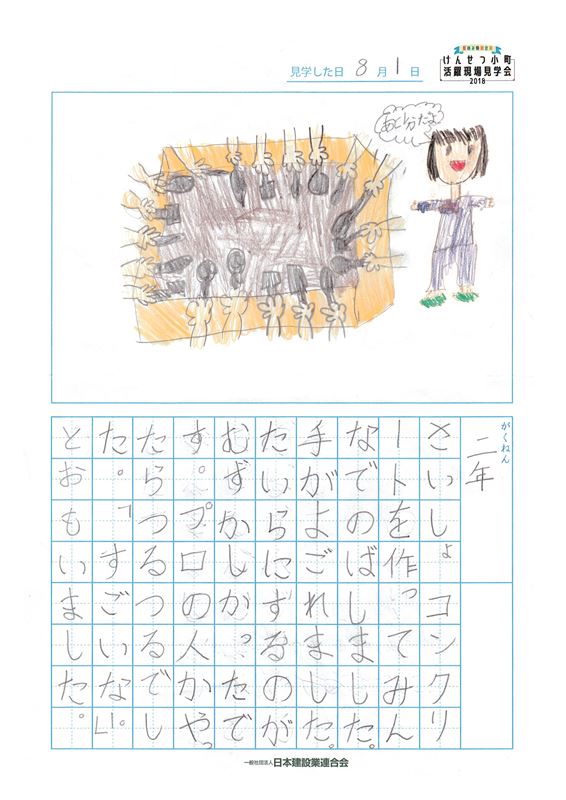 けんせつ小町
活躍現場見学会
2018
見学した日 8月1日
あと分だよ
がくねん
二年
さいしょコンクリ
ートを作ってみん
なでのばしました。
手がよごれました。
たいらにするのが
むずかしかったで
す。プロの人がやっ
たらつるつるでし
た。「すごいな」。
とおもいました。
一般社団法人日本建設業連合会